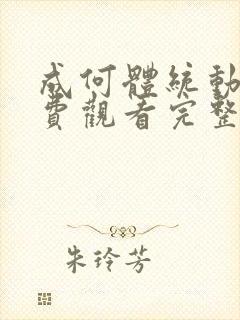 成何體統動
費觀看完整
朱玲芳